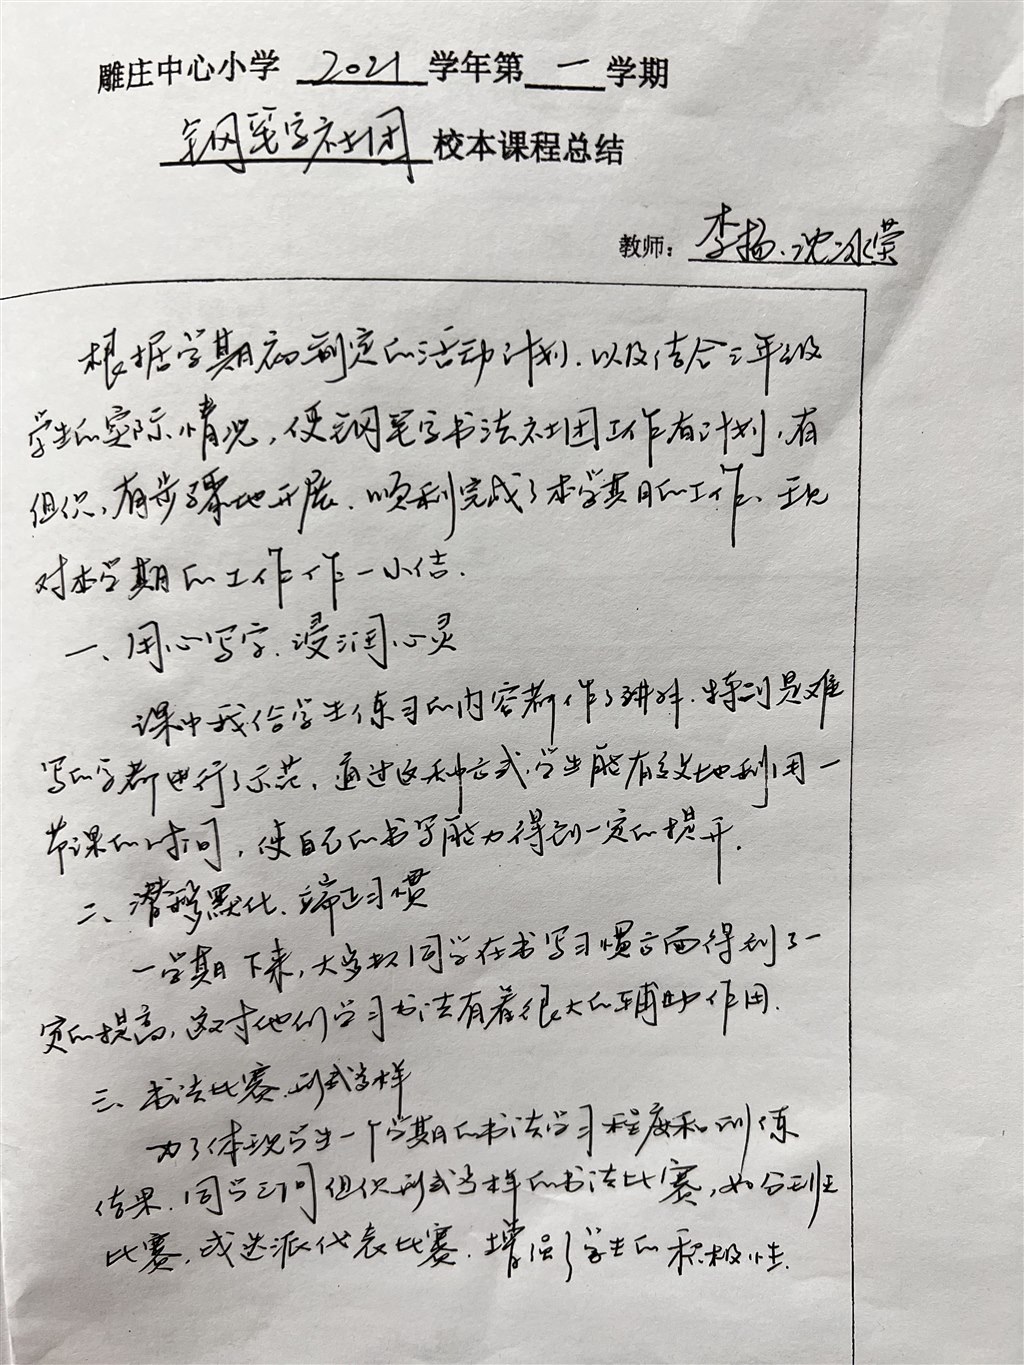 雕庄中心小学 2021 学年第 一 学期
钢笔字社团 校本课程总结
教师：李扬、沈冰莹
根据学期初制定的活动计划，以及结合三年级
学生的实际情况，使钢笔字书法社团工作有计划，有
组织，有步骤地开展，顺利完成了本学期的工作，现
对本学期的工作作一小结.
一、用心写字，浸润心灵
课中我给学生练习的内容都作了讲解，特别是难
写的字都进行了示范，通过这种方式，学生能有效地利用一
节课的时间，使自己的书写能力得到一定的提升.
二、潜移默化，端正习惯
一学期下来，大多数同学在书写习惯方面得到了一
定的提高，这对他们学习书法有着很大的辅助作用.
三、书法比赛，形式多样
为了体现学生一个学期的书法学习程度和训练
结果，同学之间组织形式多样的书法比赛，如分班
比赛，或选派代表比赛，增强了学生的积极性.